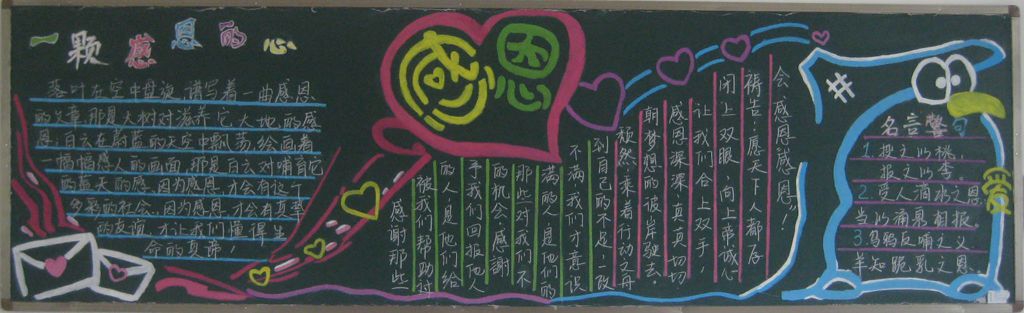 一颗感恩的心
落叶在空中盘旋,谱写着一曲感恩
的文章,那是大树对滋养它大地的感
恩;白云在蔚蓝的天空中飘荡,绘画着
一幅幅感人的画面,那是白云对哺育它
的蓝天的感恩。因为感恩,才会有这个
多彩的社会,因为感恩,才会有真挚
的友谊,才让我们懂得生
命的真谛,
感恩
会感恩感恩!!
祷告:愿天下人都存
闭上双眼,向上帝诚心
让我们合上双手,
感恩深深,真真切切
朝梦想的彼岸驶去。
颓然,乘着行动之舟
到自己的不足,改
不满,我们才意识
满的人,是他们的
那些对我们不
的机会,感谢
予我们回报他人
的人,是他们给
被我们帮助过
感谢那些
名言警句
1.投之以桃,
报之以李。
2.受人滴水之恩,
当以涌泉相报。
3.乌鸦反哺之义,
羊知跪乳之恩。
爱